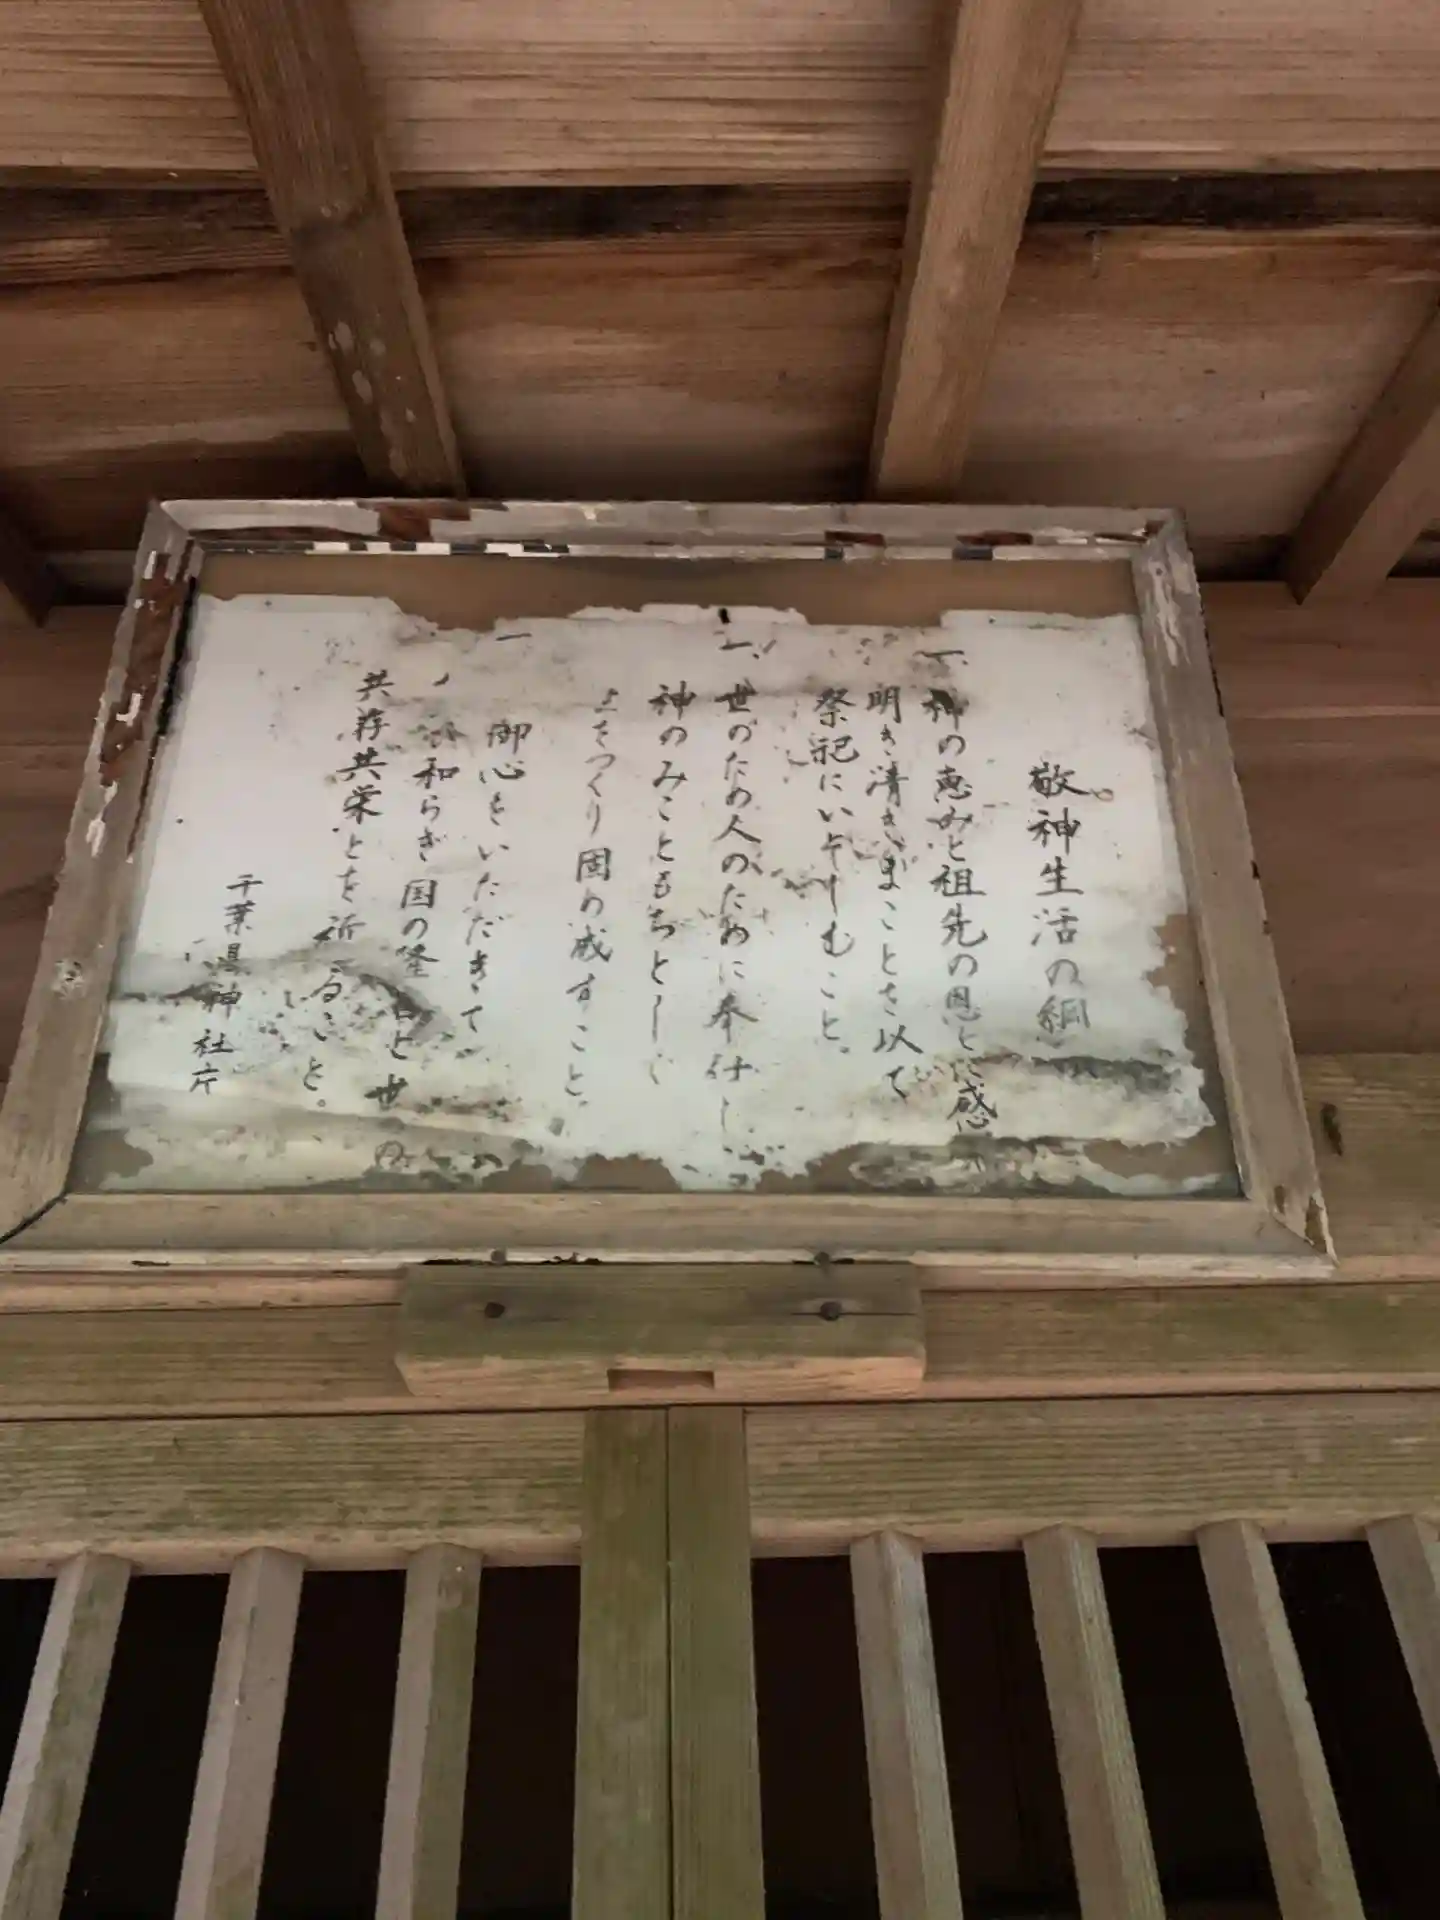 敬神生活の綱
一、神の恵みと祖先の恩とに感
明き清きまことを以て
祭祀にいそしむこと。
一、世のため人のために奉仕し
神のみこともちとして
をつくり固め成すこと
一 御心をいただきて
和らぎ国の隆 と世の
共存共栄とを祈ること。
千葉県神社庁